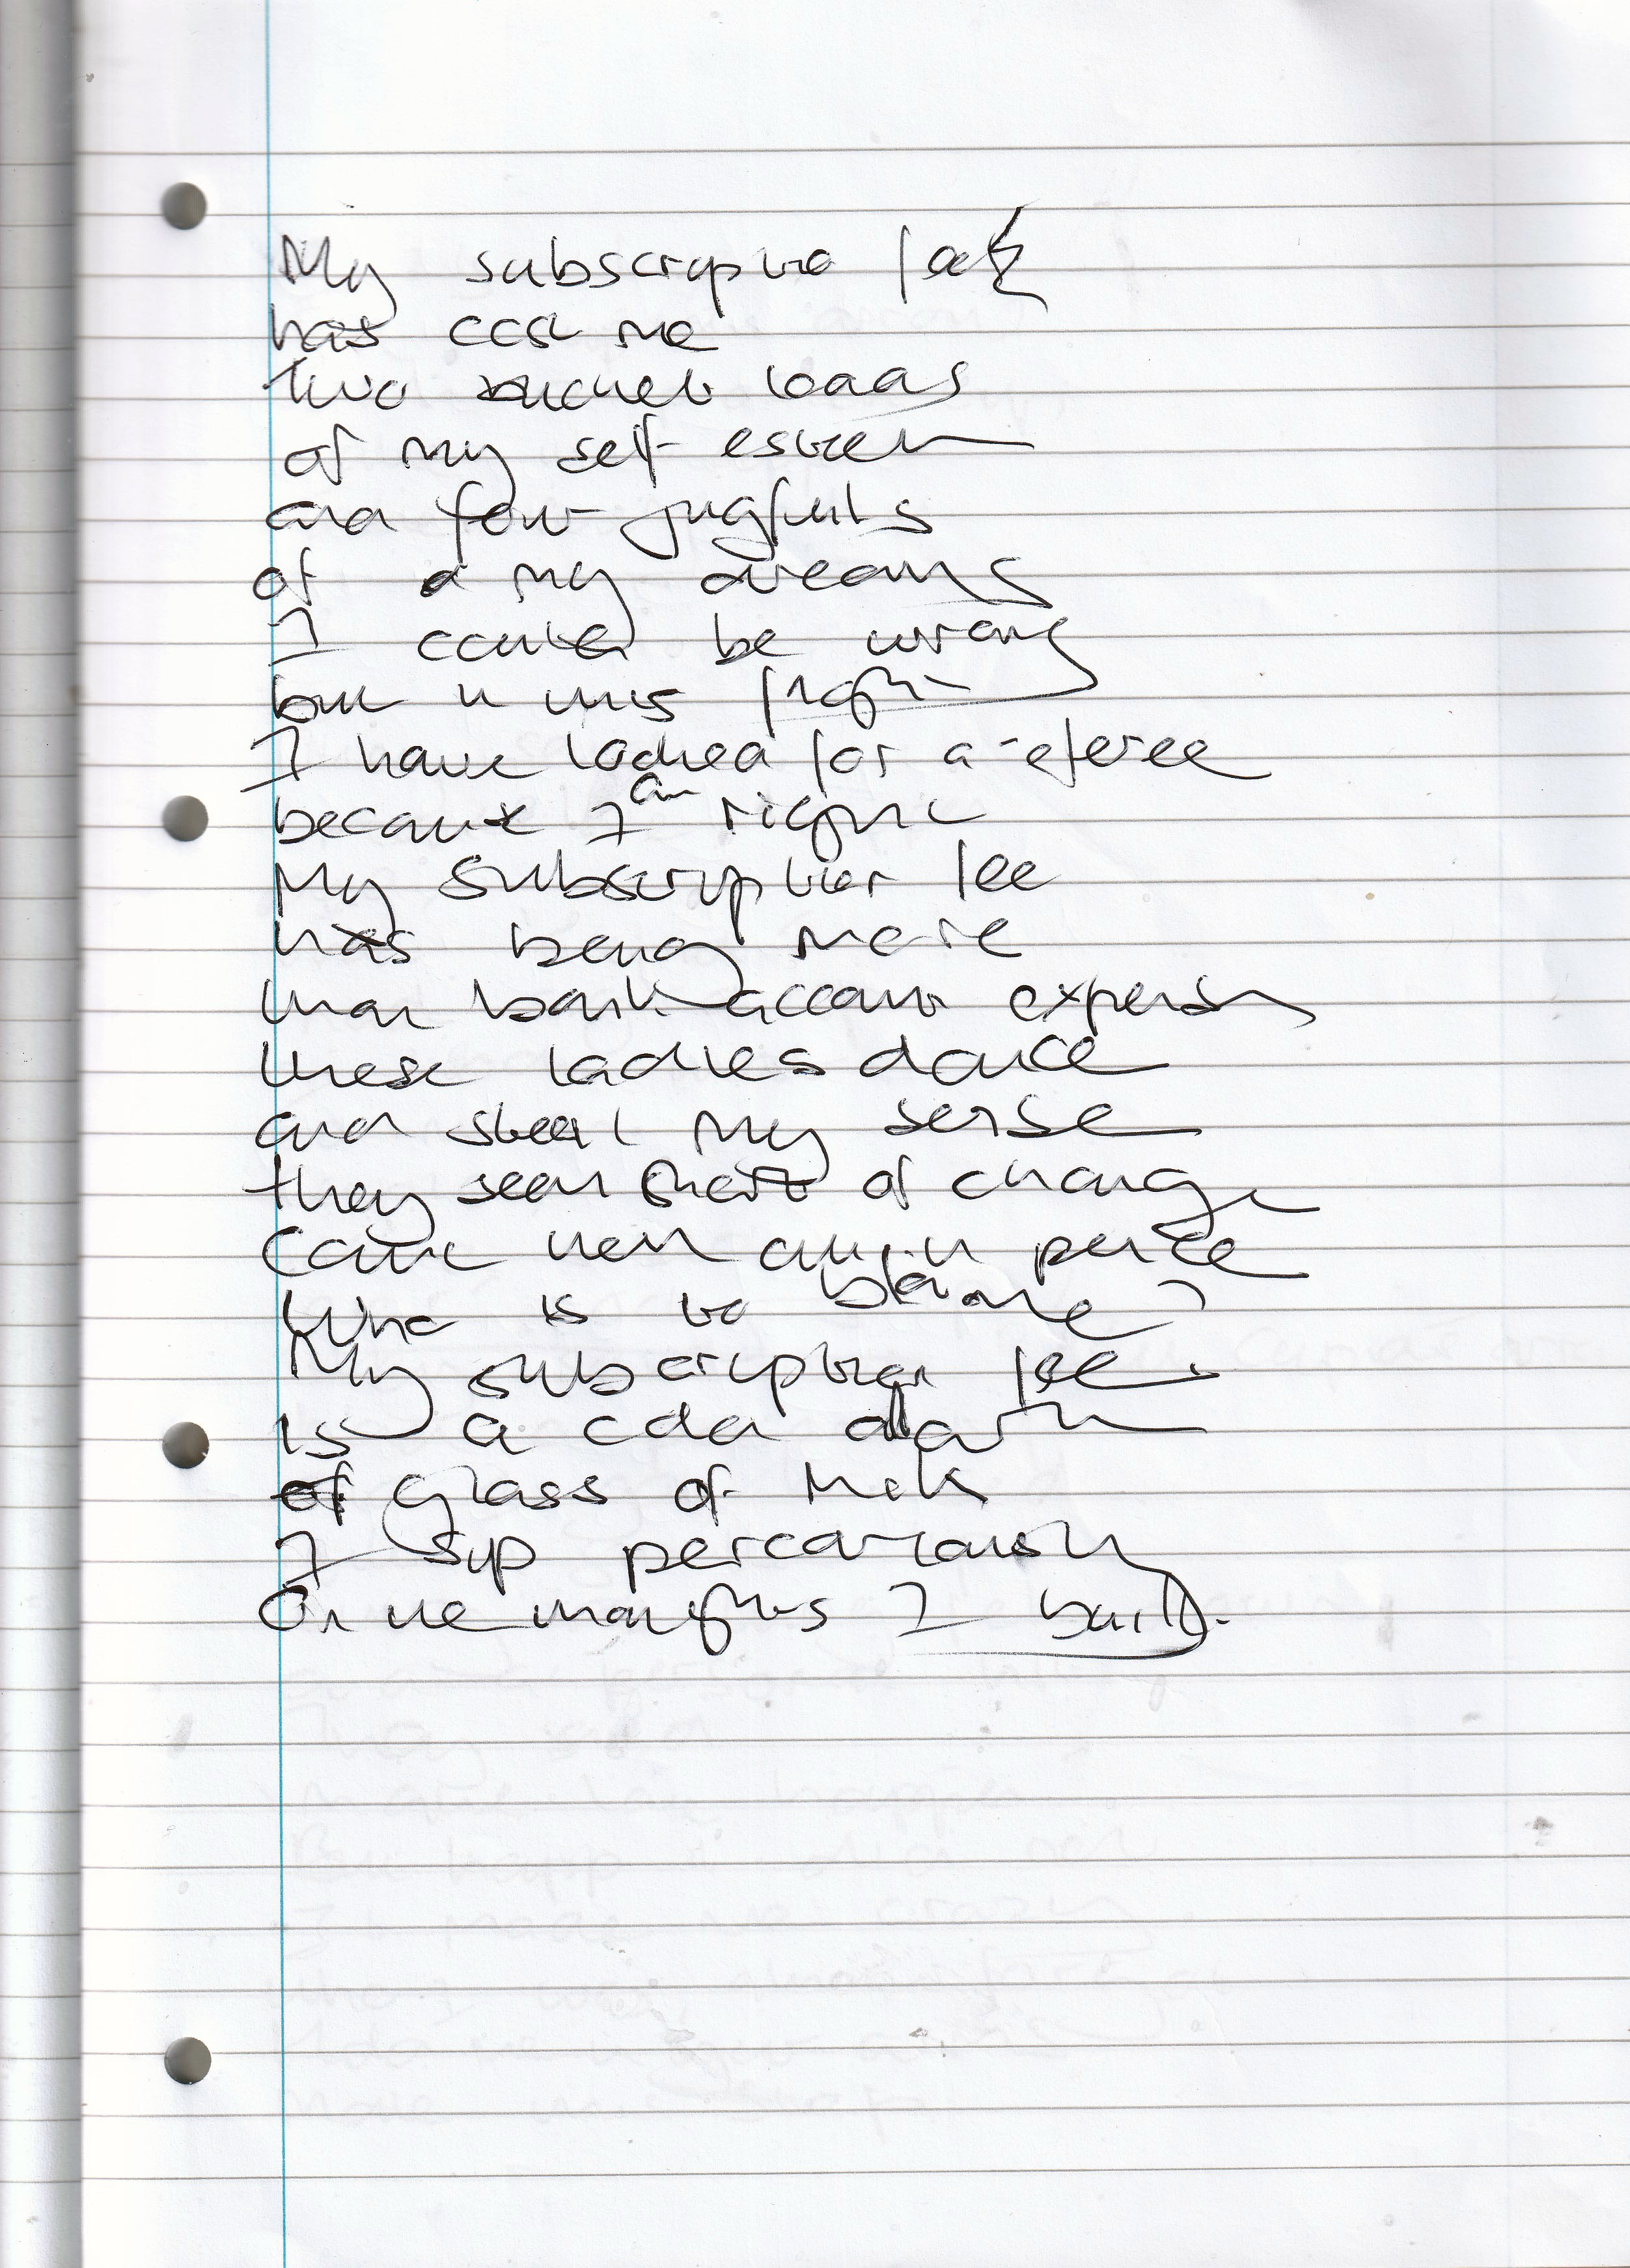 My subscription fee
has cost me
two bucket loads
of my self esteem
and four jugfuls
of my dreams
I could be wrong
but in this fight
I have looked for a referee
because I am right
My subscription fee
has being more
than bank account expense
these ladies dance
and steal my sense
they seem short of change
count them all in pence
Who is to blame?
My subscription fee
is a cold
glass of milk
I sip percariously
On the thoughts I build.